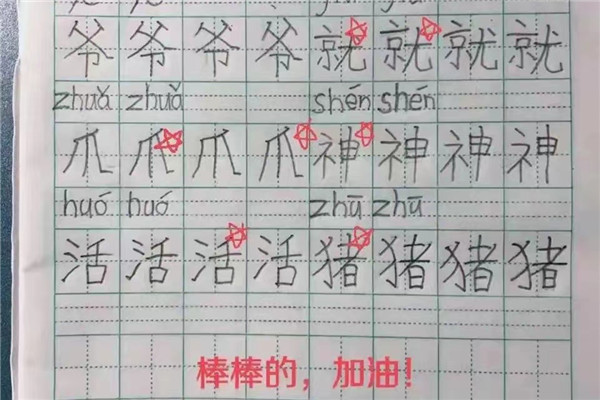 爷爷爷爷就就就就
zhuǎ zhuǎ shén shén
爪爪爪爪神神神神
huó huó zhū zhū
活活活活猪猪猪猪
棒棒的，加油！